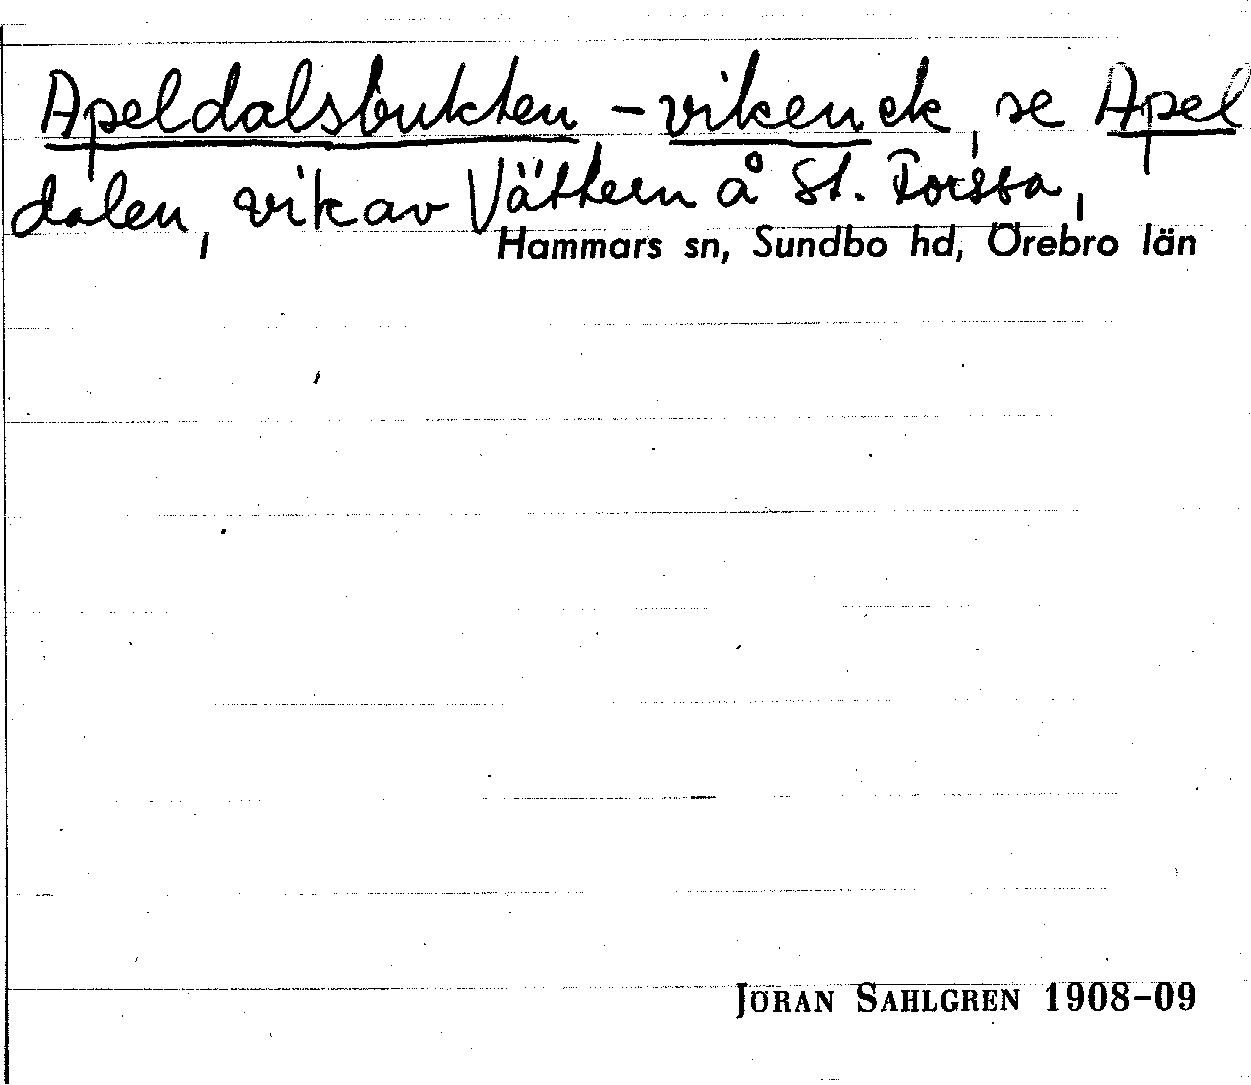 Apeldalsbukten -viken ek, se Apel
dalen, vik av Vättern å St. Forssa,
Hammars sn, Sundbo hd, Örebro län
JÖRAN SAHLGREN 1908–09